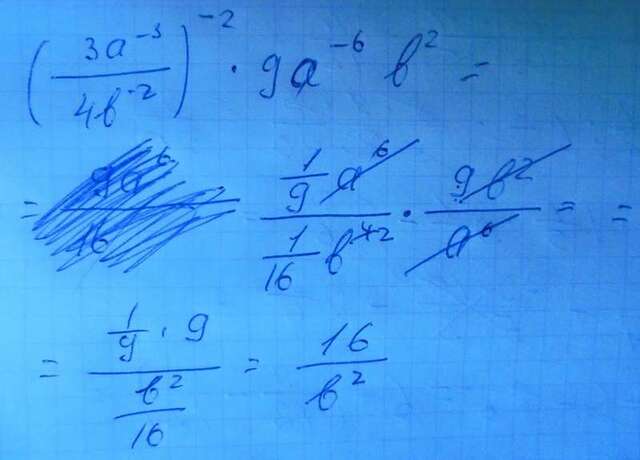 (3a⁻³/4b⁻²)⁻² · 9a⁻⁶ b² =
= (1/9 a⁶)/(1/16 b⁴²) · 9b²/a⁶ = =
= (1/9 · 9)/(b²/16) = 16/b²